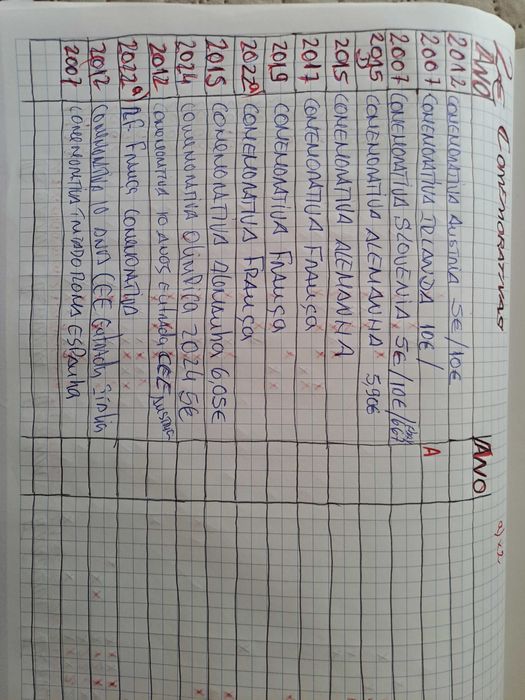 2€ COMEMORATIVAS
ANO
ANO
a) x 2
2012 COMEMORATIVA AUSTRIA 5€/10€
2007 COMEMORATIVA IRLANDA 10€/ A
2007 COMEMORATIVA SLOVENIA 5€/10€/
2015 COMEMORATIVA ALEMANHA 5,90€
D
2015 COMEMORATIVA ALEMANHA
2017 COMEMORATIVA FRANÇA
2019 COMEMORATIVA FRANÇA
2022 a) COMEMORATIVA FRANÇA
2015 COMEMORATIVA Alemanha 6,05€
2024 Comemorativa Olimpica 2024 5€
2012 Comemorativa 10 ANOS Entrada CEE
2022 a) França Comemorativa
2012 Comemorativa 10 Anos CEE Entrada
2007 COMEMORATIVA TRATADO ROMA ESPANHA